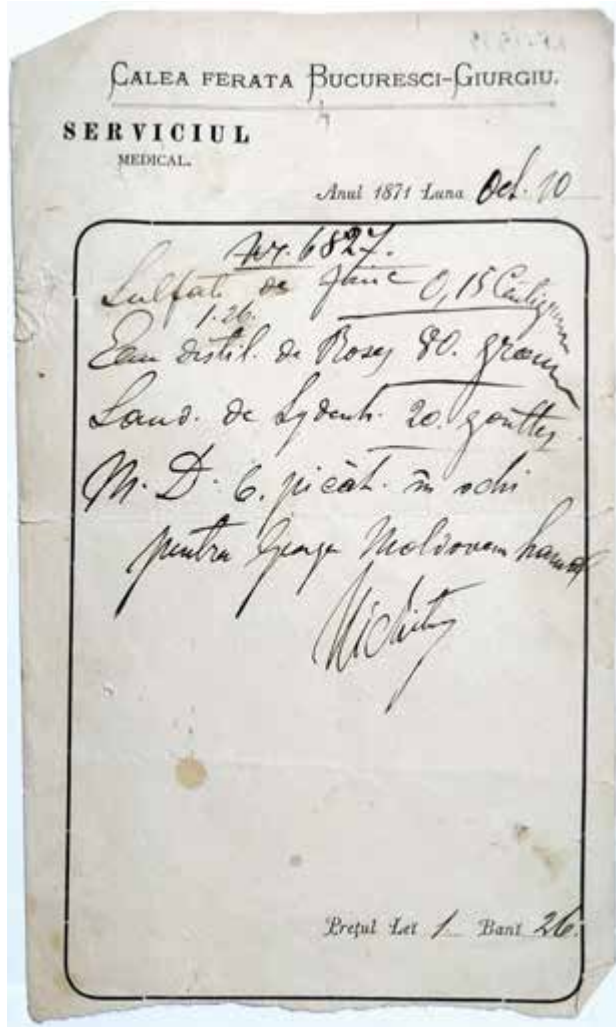 CALEA FERATA BUCURESCI-GIURGIU.
SERVICIUL
MEDICAL.
Anul 1871 Luna Oct. 10
Nr. 6827.
Sulfate de zinc 0,15 Centigram
1.26.
Eau distil. de Roses 80. gram
Laud. de Sydenh. 20. gouttes
M. D. 6. picàt. în ochi
pentru George Moldovean
Prețul Lei 1 Bani 26.